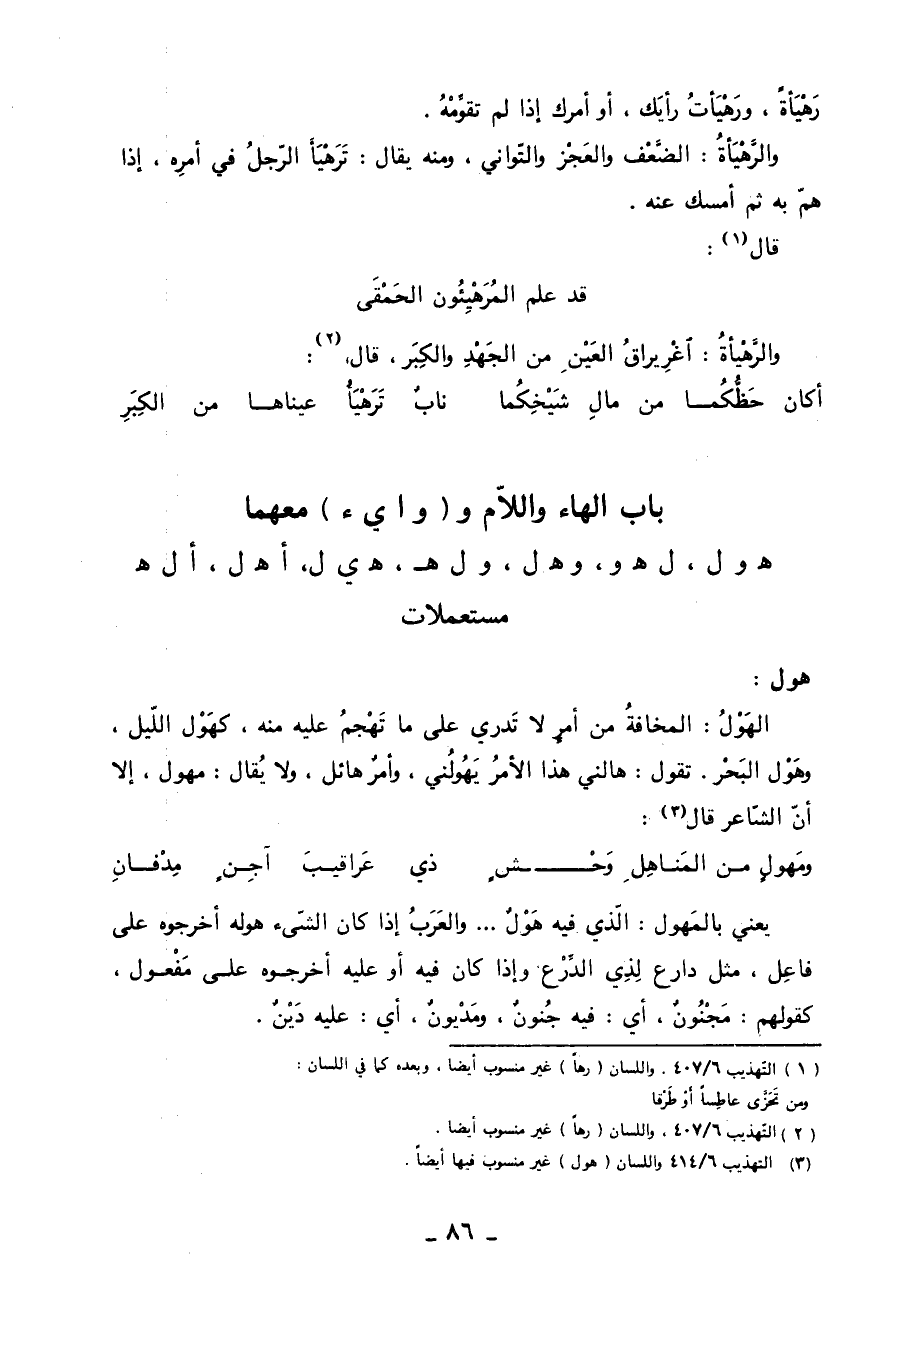 رَهْيَأةً ، ورَهْيَأتُ رأيَك ، أو أمرك إذا لم تقوِّمْهُ .
والرَّهْيَأةُ : الضَّعْف والعَجْز والتّواني ، ومنه يقال : تَرَهْيَأَ الرّجلُ في أمرِه ، إذا
همّ به ثم أمسك عنه .
قال(١) :
قد علم المُرَهْيِئُون الحَمْقَى
والرَّهْيَأةُ : ٱغْرِيراقُ العَيْنِ من الجَهْدِ والكِبَر ، قال(٢) :
أكان حَظُّكُمـــا من مالِ شَيْخِكُما نابٌ تَرَهْيَأُ عيناهـا من الكِبَرِ
باب الهاء واللاّم و ( و ا ي ء ) معهما
ه و ل ، ل ه و ، و ه ل ، و ل هـ ، ه ي ل، أ ه ل ، أ ل ه
مستعملات
هول :
الهَوْلُ : المخافةُ من أمرٍ لا تَدري على ما تَهْجمُ عليه منه ، كهَوْل اللّيل ،
وهَوْل البَحْر . تقول : هالني هذا الأمرُ يَهُولُني ، وأمرٌ هائل ، ولا يُقال : مهول ، إلا
أنّ الشّاعر قال(٣) :
ومَهولٍ مـن المَنـاهِلِ وَحْــــــشٍ ذي عَراقيـبَ آجِـنٍ مِدْفـانِ
يعني بالمَهول : الّذي فيه هَوْلٌ ... والعَرَبُ إذا كان الشّيء هوله أخرجوه على
فاعِل ، مثل دارع لِذِي الدِّرْع وإذا كان فيه أو عليه أخرجـوه علـى مَفْعـول ،
كقولهم : مَجْنُونٌ ، أي : فيه جُنونٌ ، ومَدْيونٌ ، أي : عليه دَيْنٌ .
( ١ ) التّهذيب ٤٠٧/٦ . واللسان ( رهأ ) غير منسوب أيضا ، وبعده كما في اللسان :
ومن تَحَزَّى عاطِساً أوْ طَرَقا
( ٢ ) التّهذيب ٤٠٧/٦ ، واللسان ( رهأ ) غير منسوب أيضا .
(٣) التهذيب ٤١٤/٦ واللسان ( هول ) غير منسوب فيها أيضاً .
ـ ٨٦ ـ